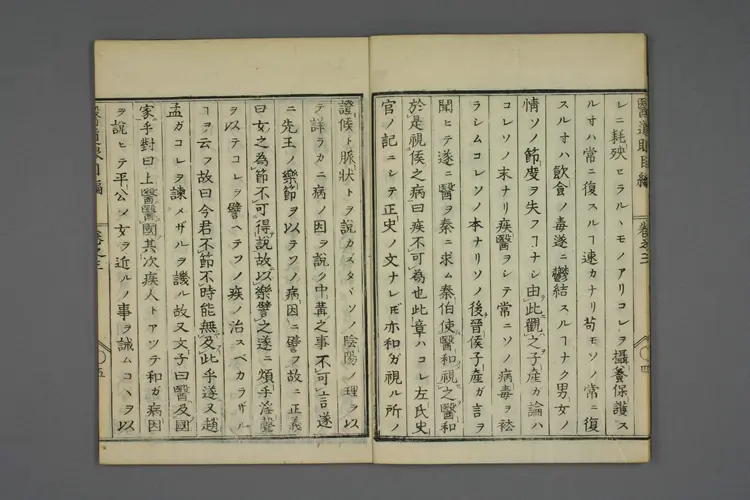 醫道眼目編 卷之三 四
レニ耗殃ヒラルヽモノアリコレヲ攝養保護ス
ルオハ常ニ復スルヿ速カナリ苟モソノ常ニ復
スルオハ飮食ノ毒遂ニ鬱結スルヿナク男女ノ
情ソノ節度ヲ失フヿナシ由此觀之子產カ論ハ
コレソノ末ナリ疾醫ヲシテ常ニソノ病毒ヲ
ラシムコレソノ本ナリソノ後晉侯子產ガ言ヲ
聞ヒテ遂ニ醫ヲ秦ニ求ム秦伯使醫和視之醫和
於是視侯之病曰疾不可為也此章ハコレ左氏史
官ノ記ニシテ正史ノ文ナレ𪜈亦和ガ視ル所ノ
證候ト脈狀トヲ說カズタヾソノ陰陽ノ理ヲ以
テ詳ラカニ病ノ因ヲ說ク中冓之事不可言遂
ニ先王ノ樂節ヲ以テソノ病因ニ譬フ故ニ正義
曰女之為節不可得說故以樂譬之遂ニ煩手淫聲
ヲ以テコレヲ譬ヘテソノ疾ノ治スベカラザル
ヿヲ云フ故曰今君不節不時能無及此乎遂又趙
孟ガコレヲ諫メザルヲ譏ル故又文子曰醫及國
家乎對曰上醫醫國其次疾人トアツテ和ガ病因
ヲ說ヒテ平公ノ女ヲ近ルノ事ヲ誡ムコヽヲ以
卷之三 五